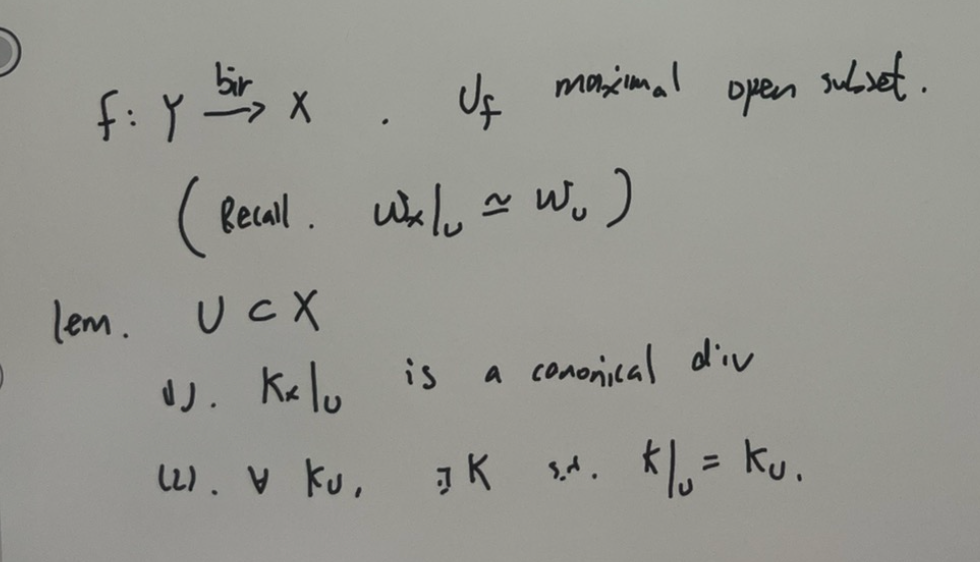 f: Y \xrightarrow{bir} X . U_f maximal open subset.
( Recall. ω_X|_U ≃ ω_U )
lem. U ⊂ X
(1). K_X|_U is a canonical div
(2). ∀ K_U, ∃ K s.t. K|_U = K_U.